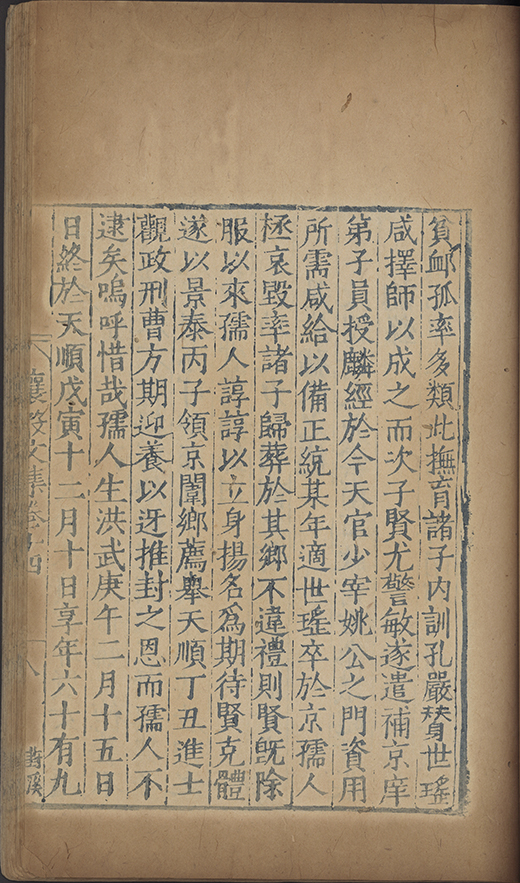 貧卹孤率多類此撫育諸子內訓孔嚴世瑤
咸擇師以成之而次子賢尤警敏遂遣補京庠
第子員授麟經於今天官少宰姚公之門資用
所需咸給以備正統某年適世瑤卒於京孺人
極哀毀率諸子歸葬於其鄉不違禮則賢旣除
服以來孺人諄諄以立身揚名爲期待賢克體
遂以景泰丙子領京闈鄉薦舉天順丁丑進士
觀政刑曹方期迎養以迓推封之恩而孺人不
逮矣嗚呼惜哉孺人生洪武庚午二月十五日
日終於天順戊寅十二月十日享年六十有九
襄毅文集卷十四